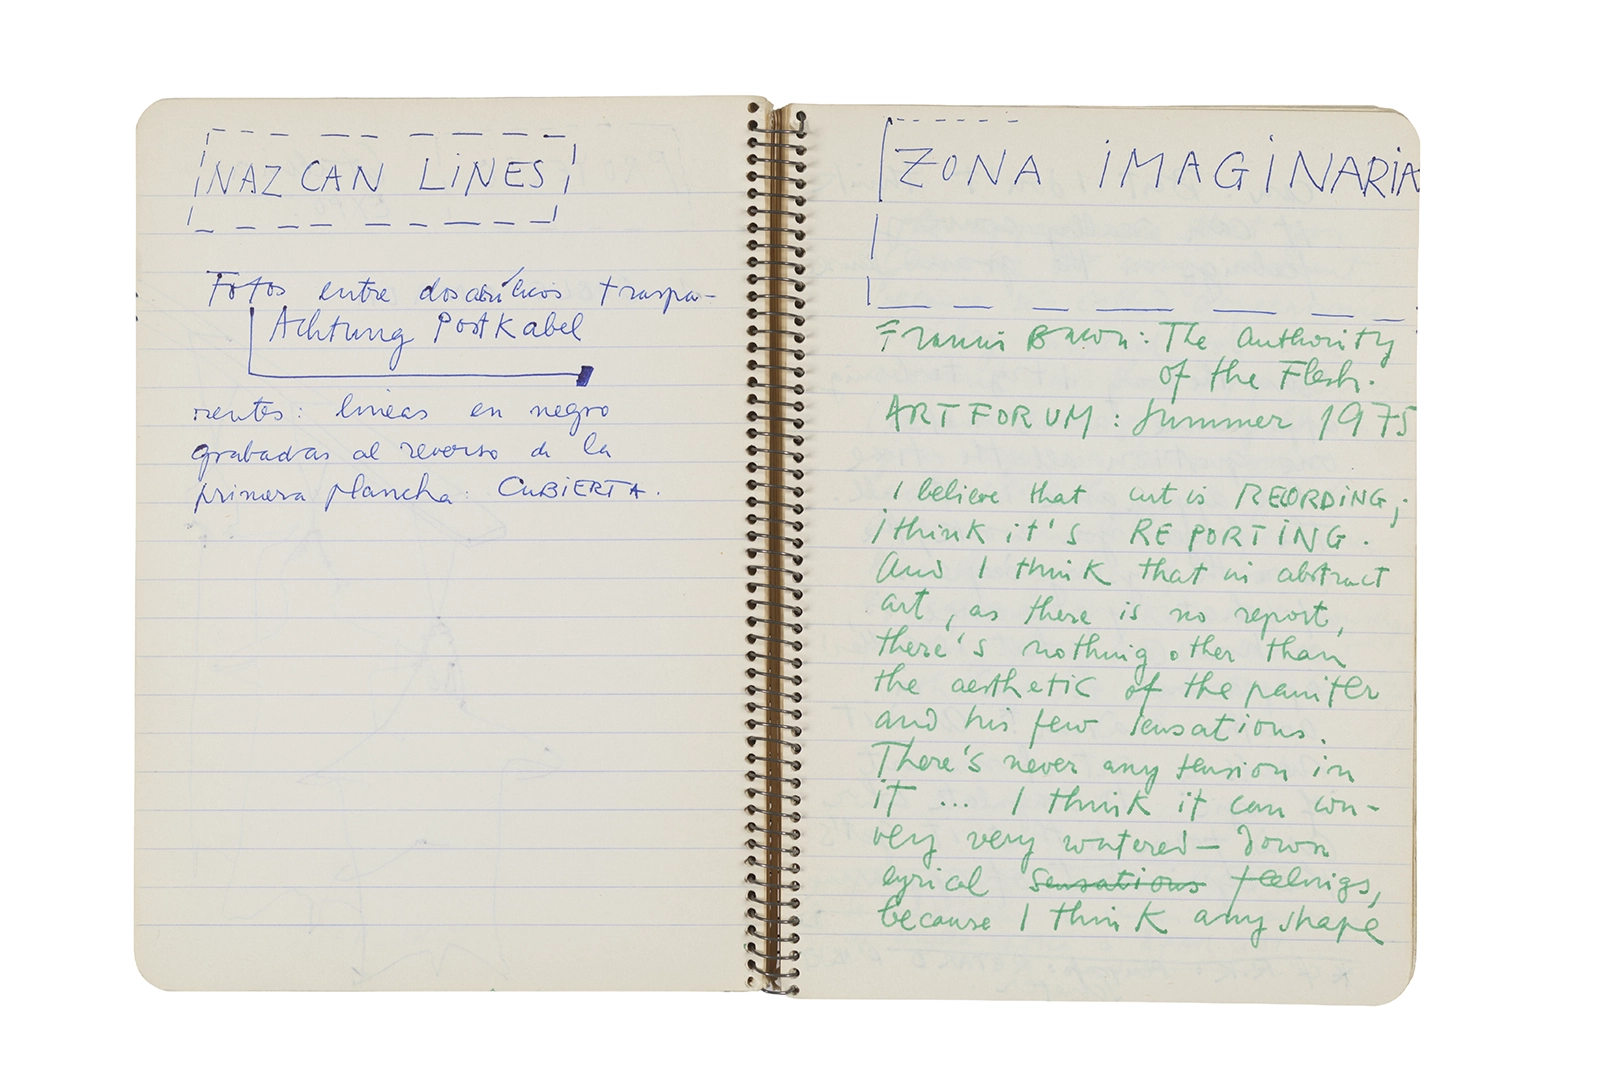 NAZCAN LINES
Fotos entre dos acrílicos traspa-
Achtung Postkabel
rentes: lineas en negro
grabadas al reverso de la
primera plancha: CUBIERTA.
ZONA IMAGINARIA
Francis Bacon: The Authority
of the Flesh.
ARTFORUM: Summer 1975
I believe that art is RECORDING;
i think it's REPORTING.
And I think that in abstract
art, as there is no report,
there's nothing other than
the aesthetic of the painter
and his few sensations.
There's never any tension in
it ... I think it can con-
vey very watered-down
lyrical sensations feelings,
because I think any shape